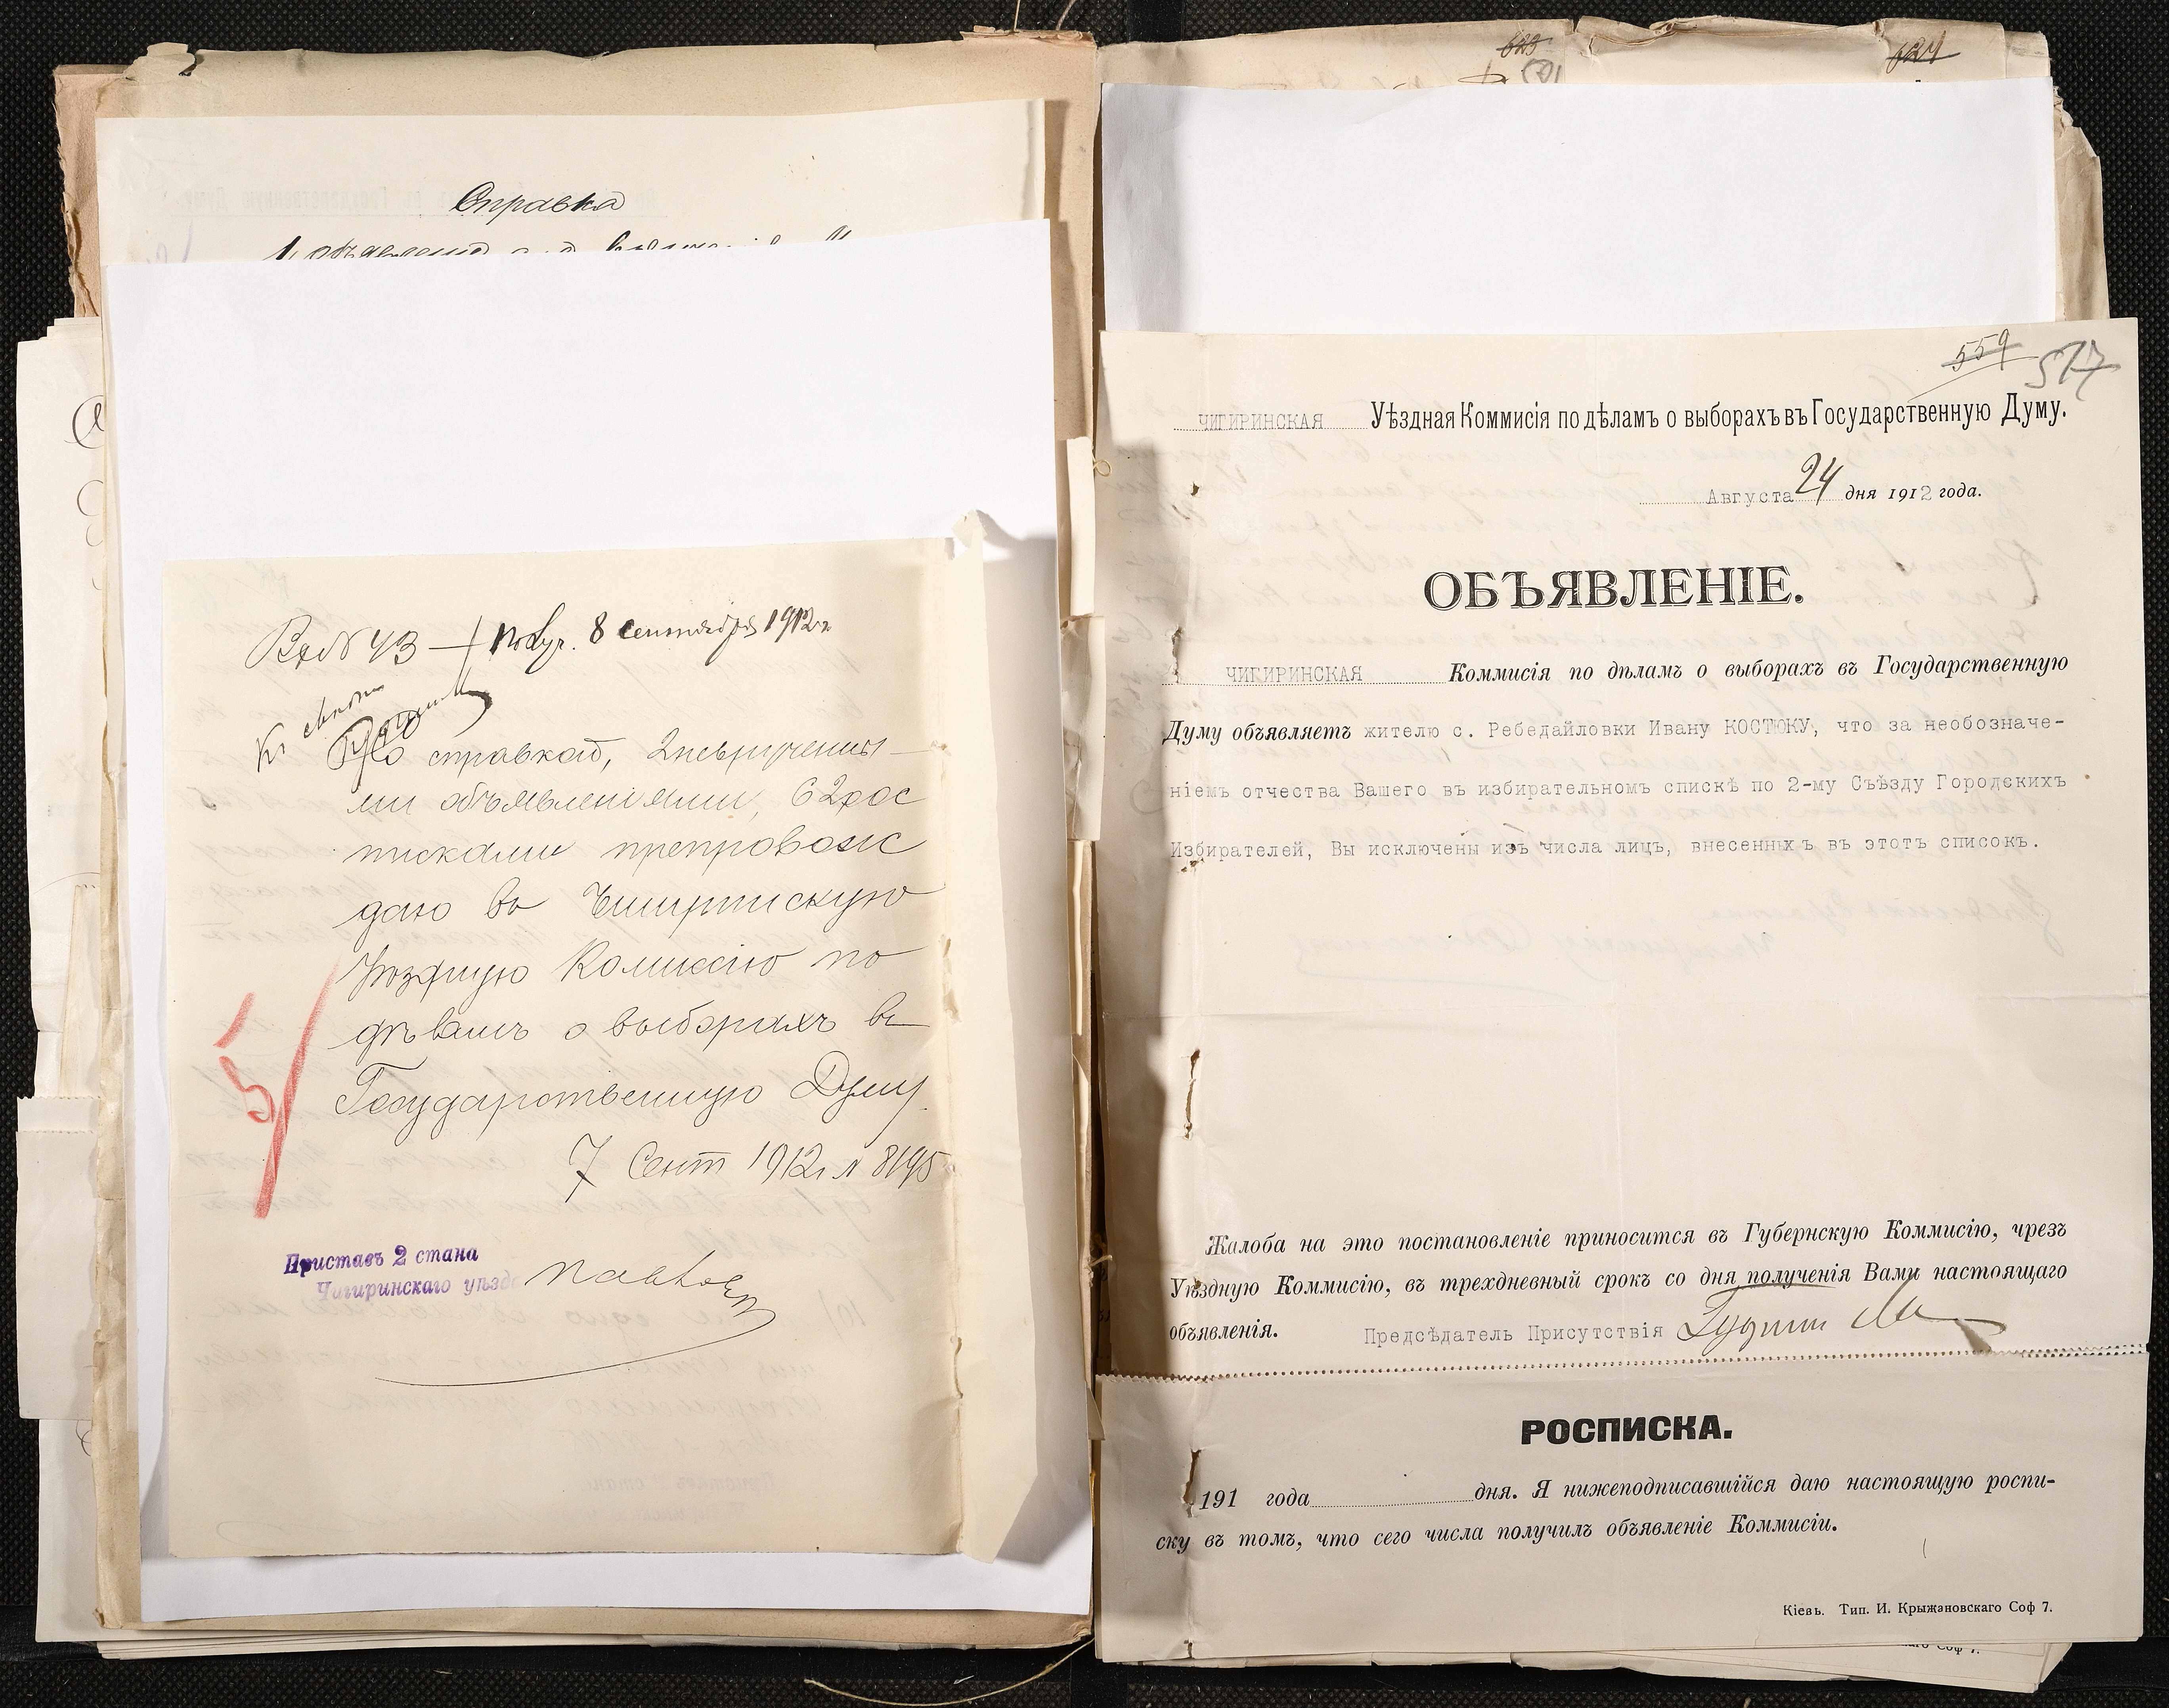 Справка
Вх № 43 — Получ. 8 сентября 1912 г.
Со справкой, 2 невручены-
ми объявленіями, 62 рос
писками препровож
даю въ Чигиринскую
Уѣздную Комиссію по
дѣламъ о выборахъ въ
Государственную Думу.
7 Сент 1912 г № 8195
5/
Приставъ 2 стана
Чигиринскаго уѣзда
623
501
624
559 517
ЧИГИРИНСКАЯ Уѣздная Коммисія по дѣламъ о выборахъ въ Государственную Думу.
Августа 24 дня 1912 года.
ОБЪЯВЛЕНІЕ.
ЧИГИРИНСКАЯ Коммисія по дѣламъ о выборахъ въ Государственную
Думу объявляетъ жителю с. Ребедайловки Ивану КОСТЮКУ, что за необозначе-
ніемъ отчества Вашего въ избирательномъ спискѣ по 2-му Съѣзду Городскихъ
Избирателей, Вы исключены изъ числа лицъ, внесенныхъ въ этотъ список.
Жалоба на это постановленіе приносится въ Губернскую Коммисію, чрезъ
Уѣздную Коммисію, въ трехдневный срокъ со дня полученія Вами настоящаго
объявленія. Предсѣдатель Присутствія
РОСПИСКА.
191 года дня. Я нижеподписавшійся даю настоящую роспи-
ску въ томъ, что сего числа получилъ объявленіе Коммисіи.
Кіевъ. Тип. И. Крыжановскаго Соф 7.